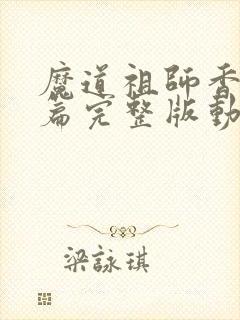 魔道祖師香
篇完整版動
梁詠琪